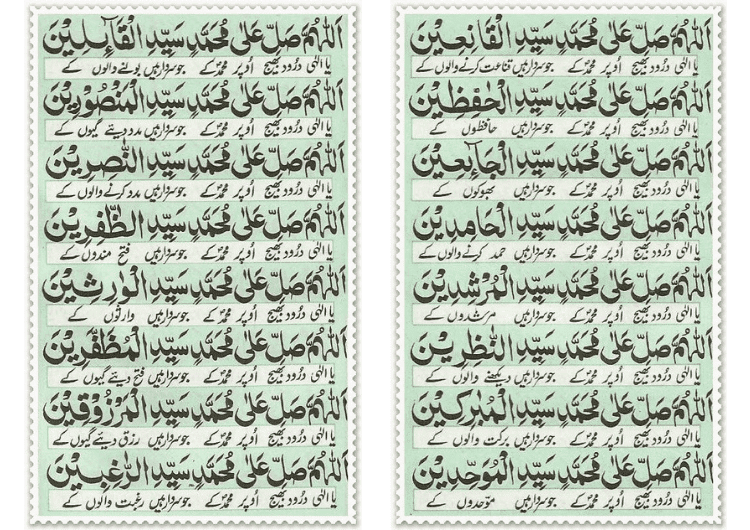 اَللّٰهُمَّ صَلِّ عَلٰى مُحَمَّدٍ سَيِّدِ الْقَانِعِيْنَ
یا الٰہی درُود بھیج اُوپر محمدؐ کے جو سردار ہیں قناعت کرنے والوں کے
اَللّٰهُمَّ صَلِّ عَلٰى مُحَمَّدٍ سَيِّدِ الْحٰفِظِيْنَ
یا الٰہی درُود بھیج اُوپر محمدؐ کے جو سردار ہیں حافظوں کے
اَللّٰهُمَّ صَلِّ عَلٰى مُحَمَّدٍ سَيِّدِ الْجَآئِعِيْنَ
یا الٰہی درُود بھیج اُوپر محمدؐ کے جو سردار ہیں بھوکوں کے
اَللّٰهُمَّ صَلِّ عَلٰى مُحَمَّدٍ سَيِّدِ الْحَامِدِيْنَ
یا الٰہی درُود بھیج اُوپر محمدؐ کے جو سردار ہیں حمد کرنے والوں کے
اَللّٰهُمَّ صَلِّ عَلٰى مُحَمَّدٍ سَيِّدِ الْمُرْشِدِيْنَ
یا الٰہی درُود بھیج اُوپر محمدؐ کے جو سردار ہیں مرشدوں کے
اَللّٰهُمَّ صَلِّ عَلٰى مُحَمَّدٍ سَيِّدِ النّٰظِرِيْنَ
یا الٰہی درُود بھیج اُوپر محمدؐ کے جو سردار ہیں دیکھنے والوں کے
اَللّٰهُمَّ صَلِّ عَلٰى مُحَمَّدٍ سَيِّدِ الْمُبٰرَكِيْنَ
یا الٰہی درُود بھیج اُوپر محمدؐ کے جو سردار ہیں برکت والوں کے
اَللّٰهُمَّ صَلِّ عَلٰى مُحَمَّدٍ سَيِّدِ الْمُوَحِّدِيْنَ
یا الٰہی درُود بھیج اُوپر محمدؐ کے جو سردار ہیں موَحدوں کے
اَللّٰهُمَّ صَلِّ عَلٰى مُحَمَّدٍ سَيِّدِ الْقَآئِلِيْنَ
یا الٰہی درُود بھیج اُوپر محمدؐ کے جو سردار ہیں بولنے والوں کے
اَللّٰهُمَّ صَلِّ عَلٰى مُحَمَّدٍ سَيِّدِ الْمَنْصُوْرِيْنَ
یا الٰہی درُود بھیج اُوپر محمدؐ کے جو سردار ہیں مدد دیئے گیوں کے
اَللّٰهُمَّ صَلِّ عَلٰى مُحَمَّدٍ سَيِّدِ النّٰصِرِيْنَ
یا الٰہی درُود بھیج اُوپر محمدؐ کے جو سردار ہیں مدد کرنے والوں کے
اَللّٰهُمَّ صَلِّ عَلٰى مُحَمَّدٍ سَيِّدِ الظّٰفِرِيْنَ
یا الٰہی درُود بھیج اُوپر محمدؐ کے جو سردار ہیں فتح مندوں کے
اَللّٰهُمَّ صَلِّ عَلٰى مُحَمَّدٍ سَيِّدِ الْوٰرِثِيْنَ
یا الٰہی درُود بھیج اُوپر محمدؐ کے جو سردار ہیں وارثوں کے
اَللّٰهُمَّ صَلِّ عَلٰى مُحَمَّدٍ سَيِّدِ الْمُظَفَّرِيْنَ
یا الٰہی درُود بھیج اُوپر محمدؐ کے جو سردار ہیں فتح دیئے گیوں کے
اَللّٰهُمَّ صَلِّ عَلٰى مُحَمَّدٍ سَيِّدِ الْمَرْزُوْقِيْنَ
یا الٰہی درُود بھیج اُوپر محمدؐ کے جو سردار ہیں رزق دیئے گیوں کے
اَللّٰهُمَّ صَلِّ عَلٰى مُحَمَّدٍ سَيِّدِ الرّٰغِبِيْنَ
یا الٰہی درُود بھیج اُوپر محمدؐ کے جو سردار ہیں رغبت والوں کے